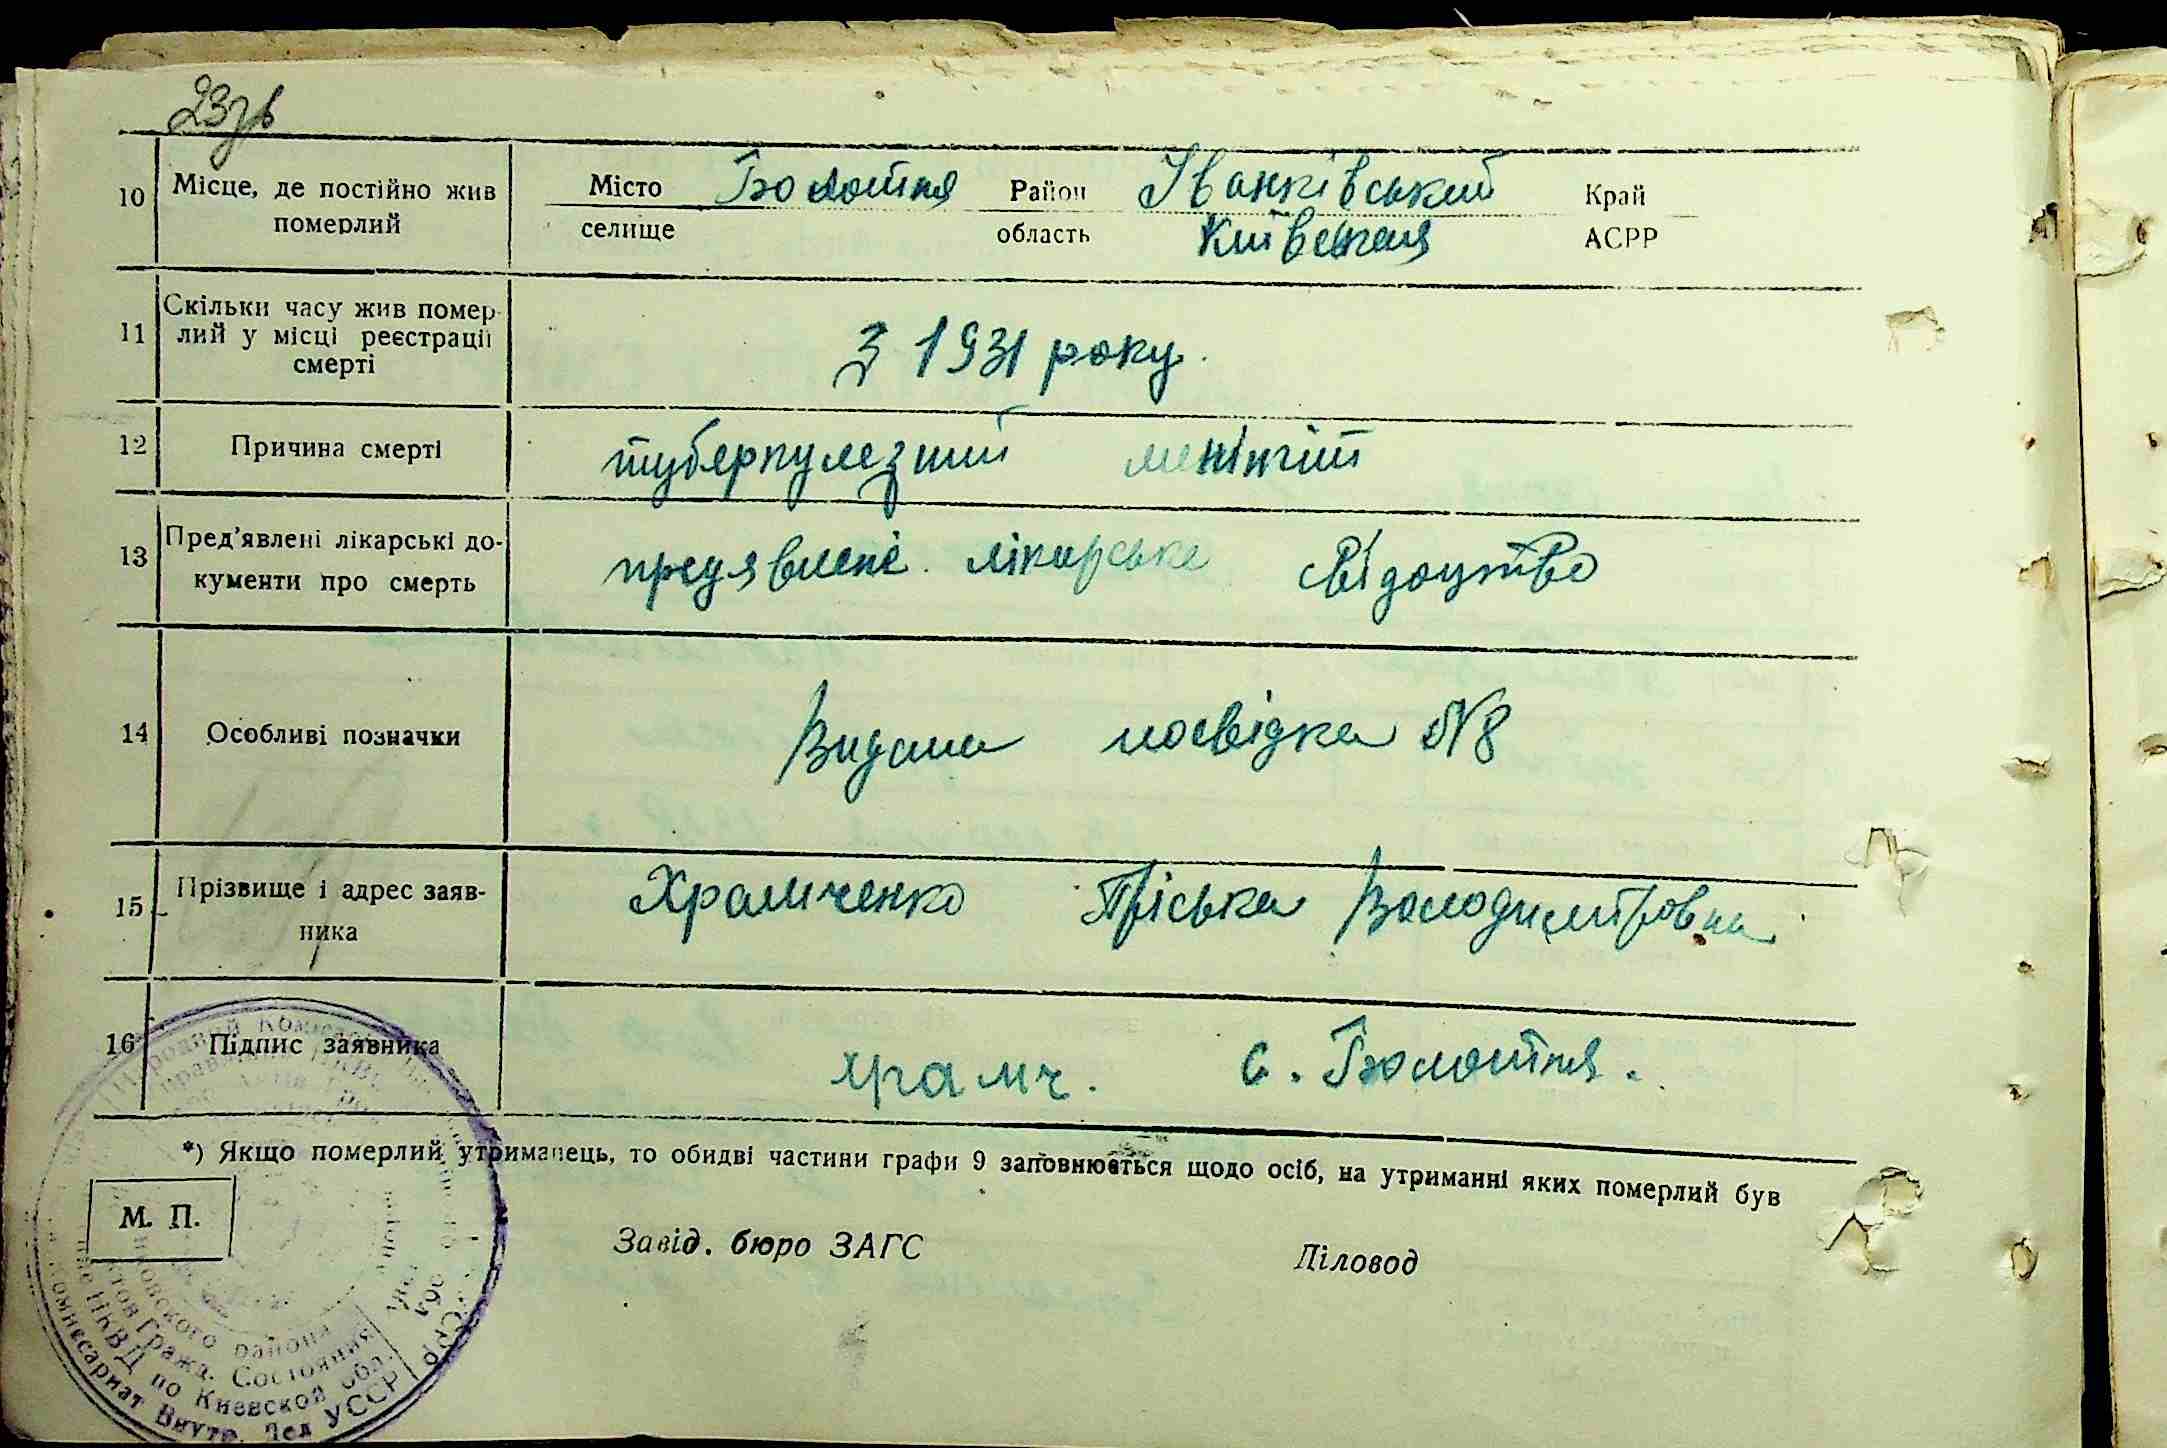 23зв
10 Місце, де постійно жив померлий Місто Болотня Район Іванківський Край
селище область Київська АСРР
11 Скільки часу жив помер-
лий у місці реєстрації
смерті
З 1931 року.
12 Причина смерті туберкулезний менінгіт
13 Пред'явлені лікарські до-
кументи про смерть
предявлене лікарське свідоцтво
14 Особливі позначки Видана посвідка №8
15 Прізвище і адрес заяв-
ника
Храмченко Пріська Володимировна
16 Підпис заявника храмч. с. Болотня.
*) Якщо померлий утриманець, то обидві частини графи 9 заповнюється щодо осіб, на утриманні яких померлий був
М. П.
Завід. бюро ЗАГС Діловод
района
Гражд. Состояния
НКВД по Киевской обл.
Комиссариат Внутр. Дел УССР